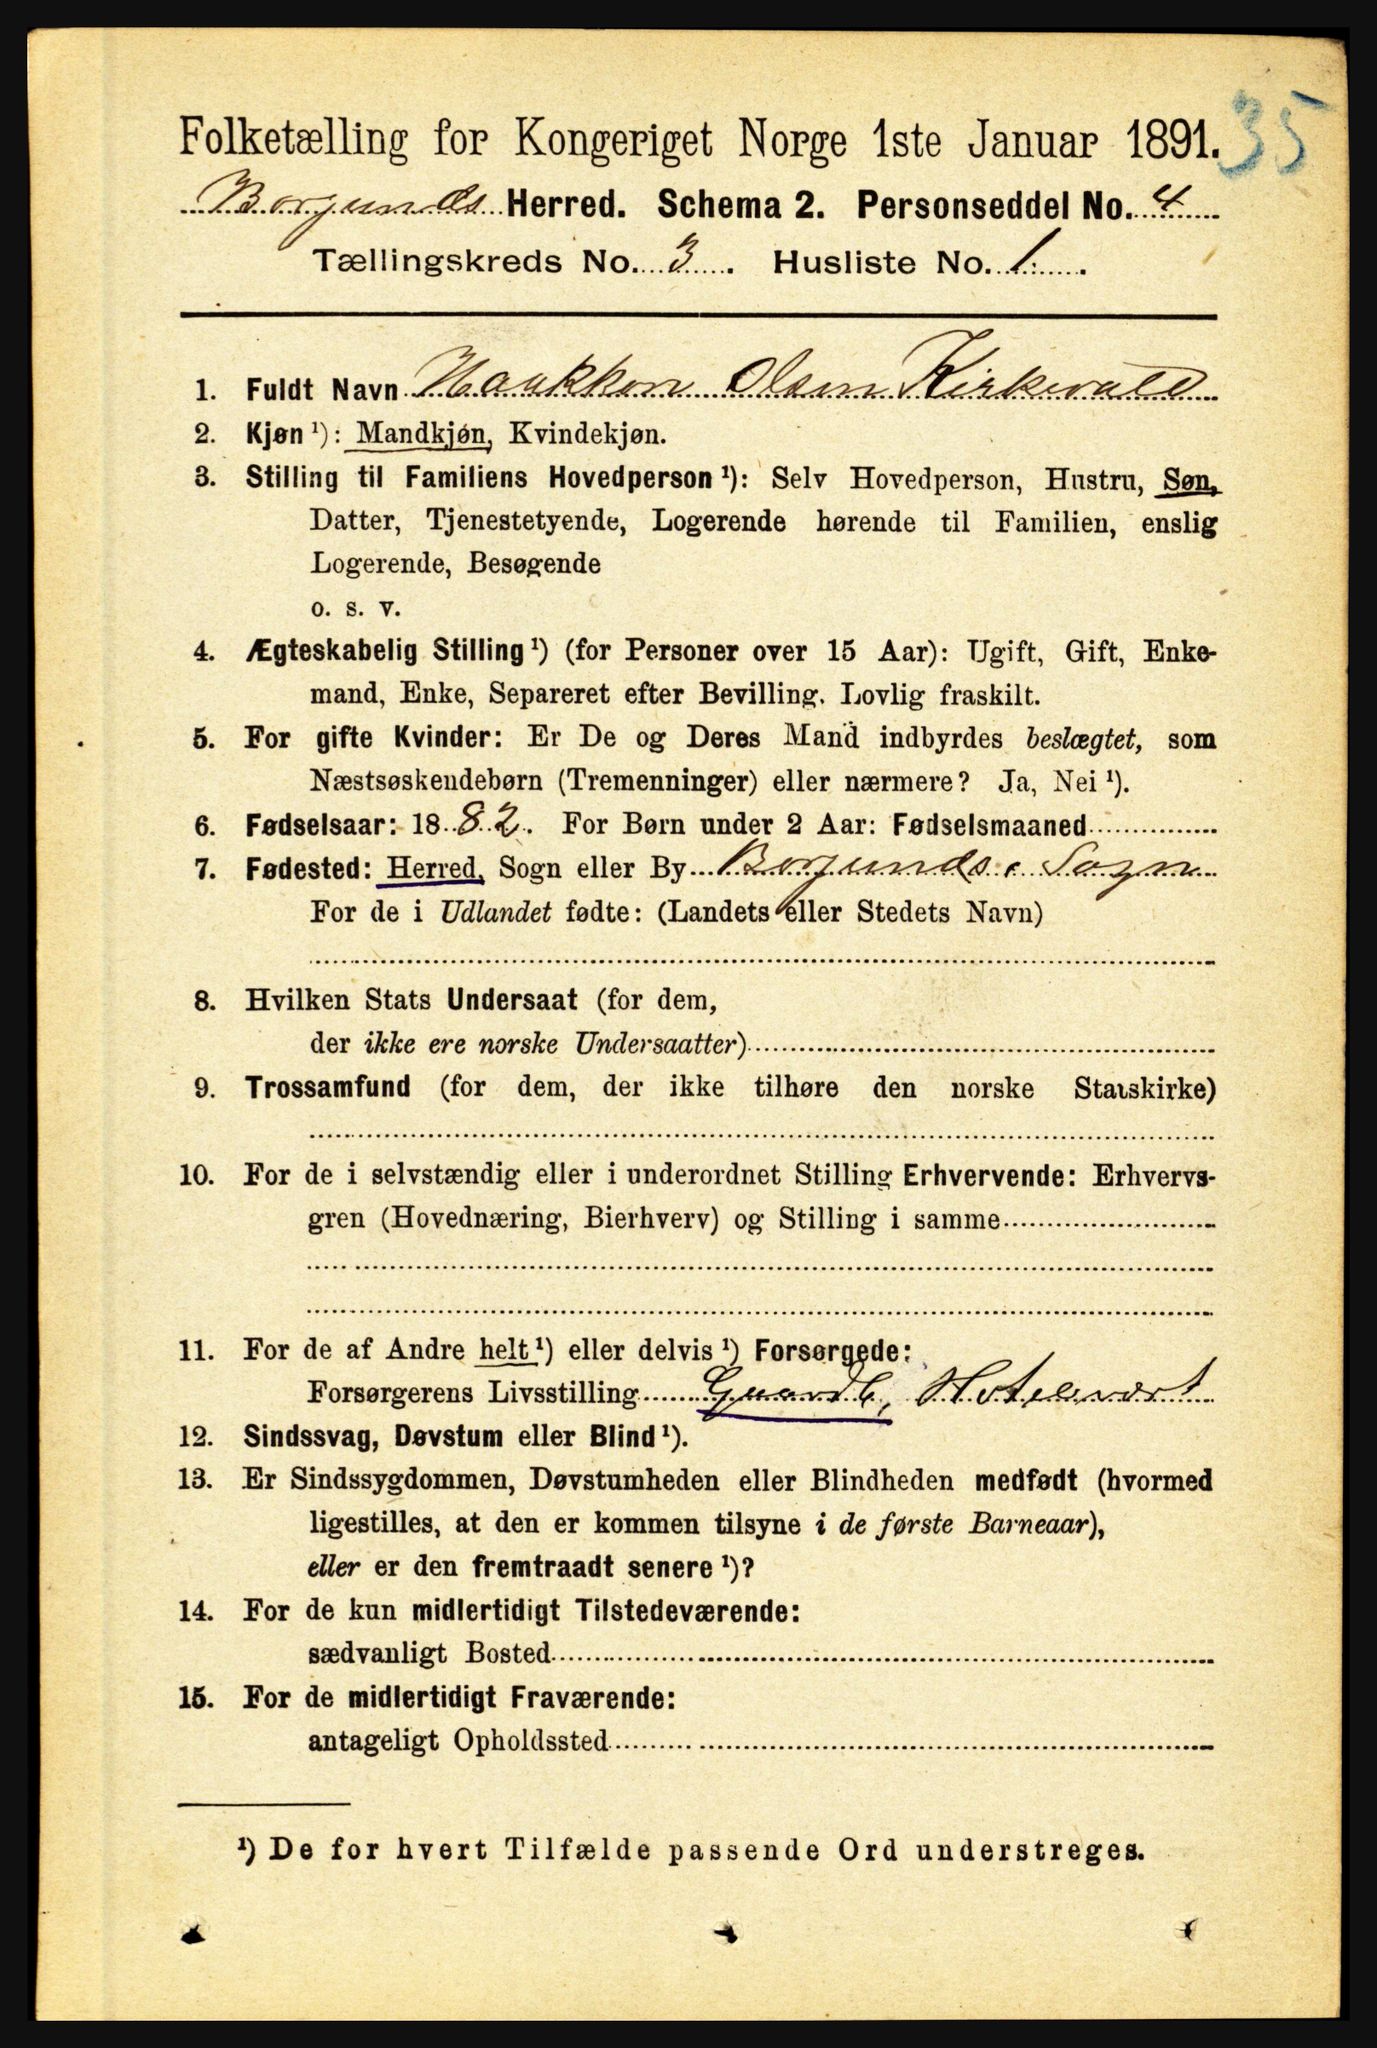 35
Folketælling for Kongeriget Norge 1ste Januar 1891.
Borgunds Herred. Schema 2. Personseddel No. 4
Tællingskreds No. 3. Husliste No. 1.
1. Fuldt Navn Haakkon Olsen Kirkevold
2. Kjøn ¹): Mandkjøn, Kvindekjøn.
3. Stilling til Familiens Hovedperson ¹): Selv Hovedperson, Hustru, Søn,
Datter, Tjenestetyende, Logerende hørende til Familien, enslig
Logerende, Besøgende
o. s. v.
4. Ægteskabelig Stilling ¹) (for Personer over 15 Aar): Ugift, Gift, Enke-
mand, Enke, Separeret efter Bevilling. Lovlig fraskilt.
5. For gifte Kvinder: Er De og Deres Mand indbyrdes beslægtet, som
Næstsøskendebørn (Tremenninger) eller nærmere? Ja, Nei ¹).
6. Fødselsaar: 1882. For Børn under 2 Aar: Fødselsmaaned
7. Fødested: Herred, Sogn eller By Borgunds. Sogn
For de i Udlandet fødte: (Landets eller Stedets Navn)
8. Hvilken Stats Undersaat (for dem,
der ikke ere norske Undersaatter)
9. Trossamfund (for dem, der ikke tilhøre den norske Statskirke)
10. For de i selvstændig eller i underordnet Stilling Erhvervende: Erhvervs-
gren (Hovednæring, Bierhverv) og Stilling i samme
11. For de af Andre helt ¹) eller delvis ¹) Forsørgede:
Forsørgerens Livsstilling Gaardb, Hotelvært
12. Sindssvag, Døvstum eller Blind ¹).
13. Er Sindssygdommen, Døvstumheden eller Blindheden medfødt (hvormed
ligestilles, at den er kommen tilsyne i de første Barneaar),
eller er den fremtraadt senere ¹)?
14. For de kun midlertidigt Tilstedeværende:
sædvanligt Bosted
15. For de midlertidigt Fraværende:
antageligt Opholdssted
¹) De for hvert Tilfælde passende Ord understreges.